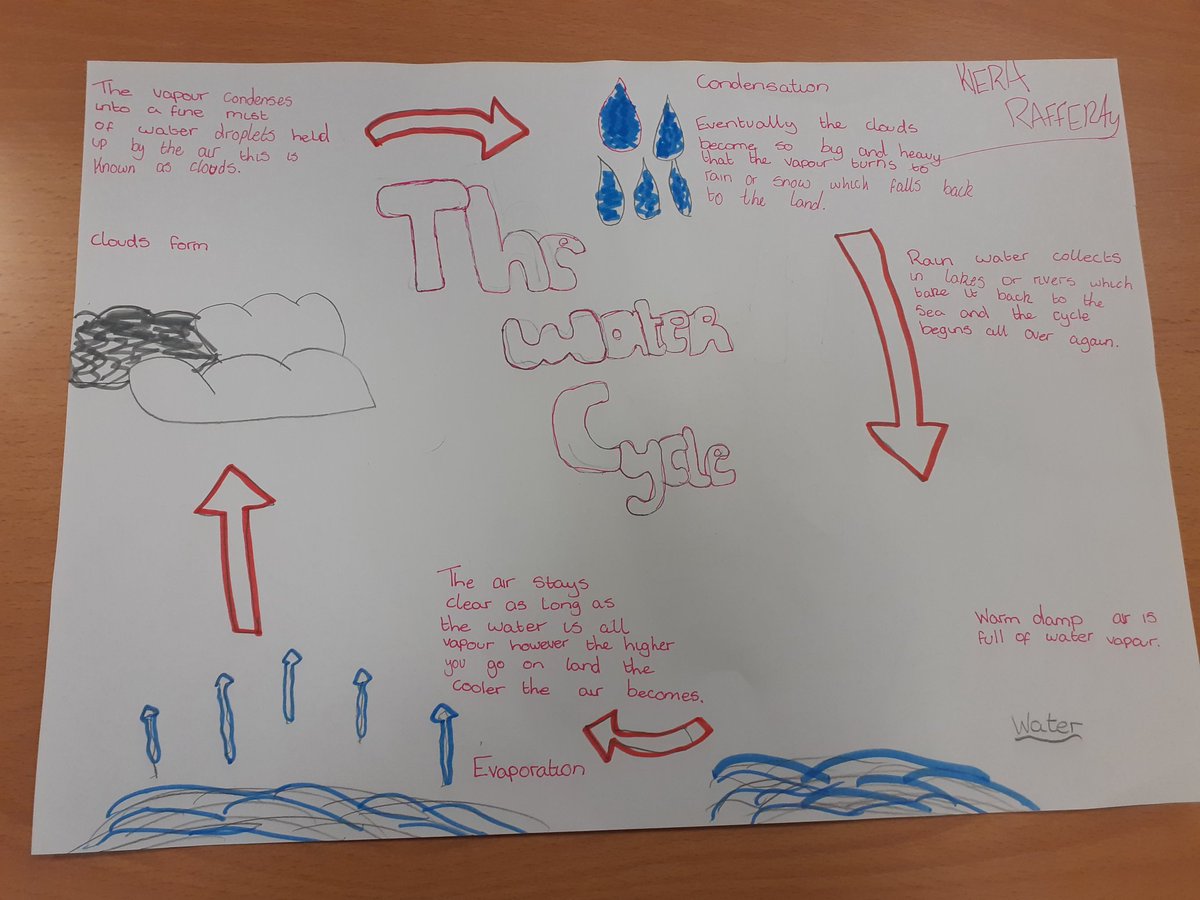 The vapour condenses
into a fine mist
of water droplets held
up by the air this is
known as clouds.
Clouds form
The
Water
Cycle
Condensation
Eventually the clouds
become so big and heavy
that the vapour turns to
rain or snow which falls back
to the land.
KIERA
RAFFERAy
Rain water collects
in lakes or rivers which
take it back to the
sea and the cycle
begins all over again.
Warm damp air is
full of water vapour.
Water
The air stays
clear as long as
the water is all
vapour however the higher
you go on land the
cooler the air becomes.
Evaporation